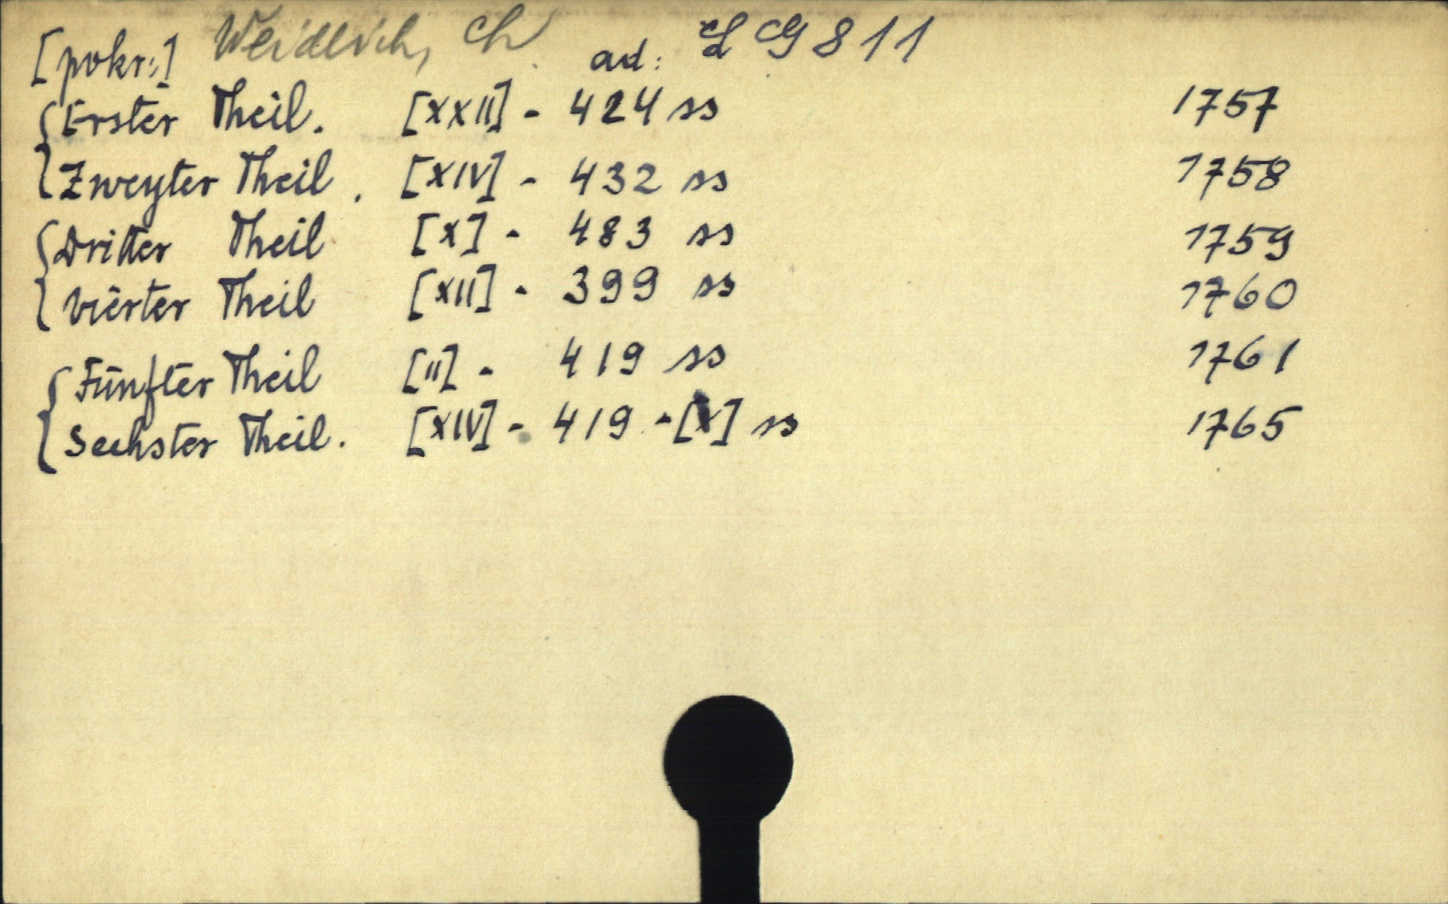 [pokr:] Weidlich, Ch ad: L G 811
Erster Theil. [XXII] - 424 ss 1757
Zweyter Theil. [XIV] - 432 ss 1758
Dritter Theil [X] - 483 ss 1759
Vierter Theil [XII] - 399 ss 1760
Fünfter Theil [II] - 419 ss 1761
Sechster Theil. [XIV] - 419 - [X] ss 1765